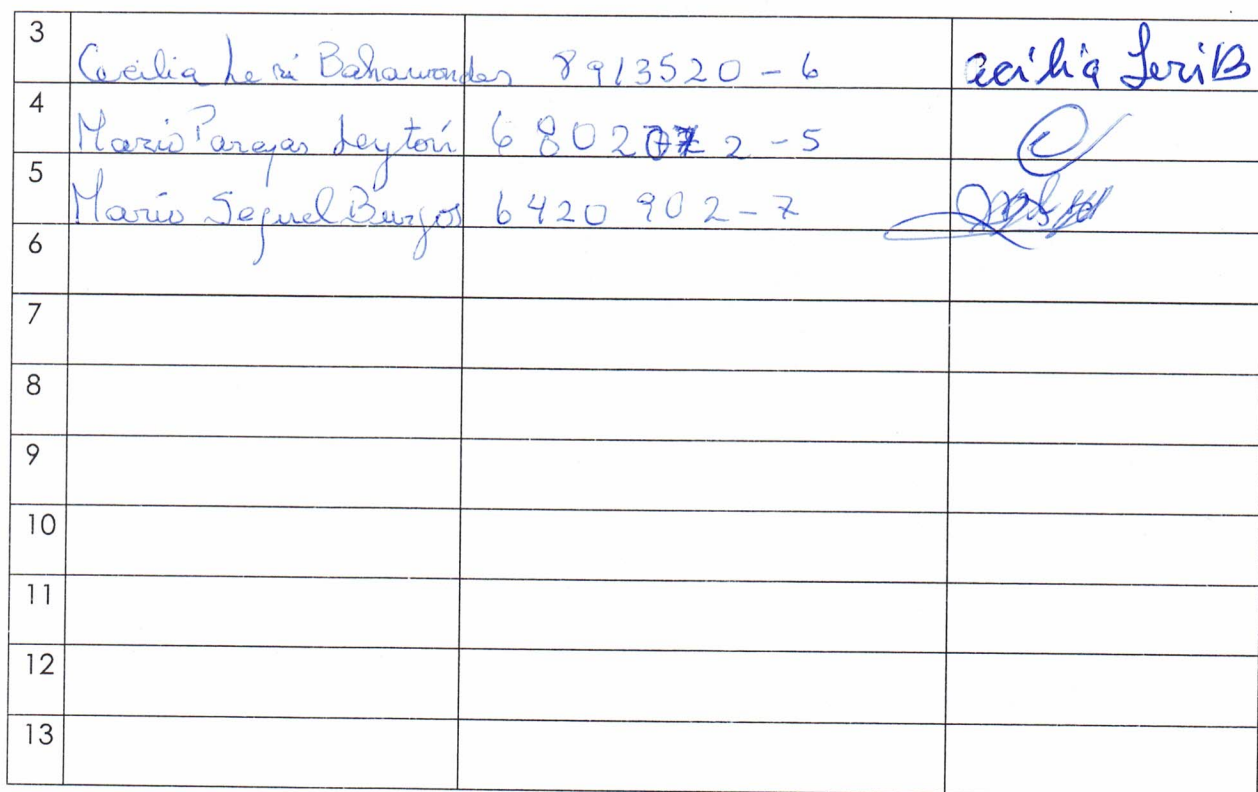 3 Cecilia Leri Bahamondes 8913520-6 Cecilia Leri B
4 Mario Parejas Leyton 6802 2-5
5 Mario Seguel Burgos 6420902-7
6
7
8
9
10
11
12
13